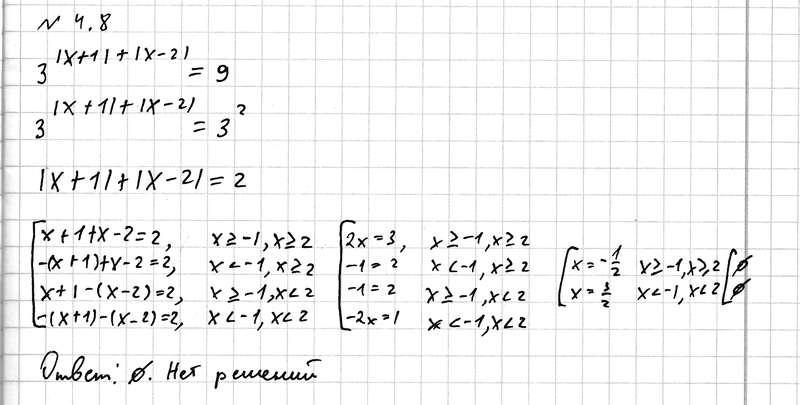 N 4.8
3^{|x+1|+|x-2|} = 9
3^{|x+1|+|x-2|} = 3^2
|x+1|+|x-2| = 2
[x+1+x-2=2, x≥-1, x≥2 [2x=3, x≥-1, x≥2
-(x+1)+x-2=2, x<-1, x≥2 -1=2 x<-1, x≥2 [x=-1/2 x≥-1, x≥2 [∅
x+1-(x-2)=2, x≥-1, x<2 -1=2 x≥-1, x<2 x=3/2 x<-1, x<2 [∅
-(x+1)-(x-2)=2, x<-1, x<2 -2x=1 x<-1, x<2
Ответ: ∅. Нет решений